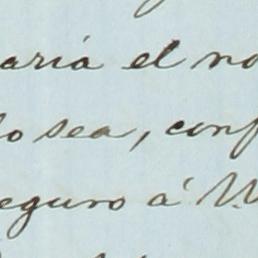 aria el no
lo sea, conf
eguro á V.